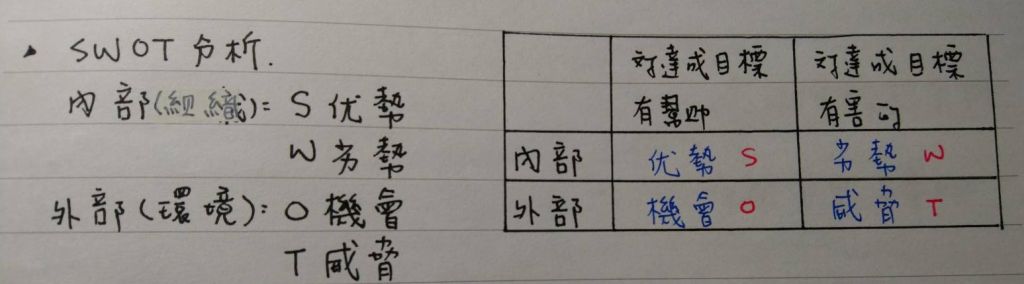 ▲ SWOT 分析.
內部(組織): S 优勢
W 劣勢
外部(環境): O 機會
T 威脅
對達成目標有幫助 對達成目標有害的
內部 优勢 S 劣勢 W
外部 機會 O 威脅 T